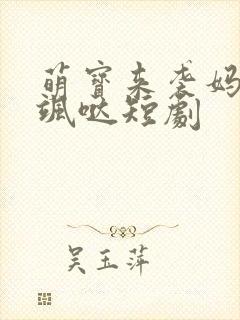 萌宝来袭妈
飒哒短剧
吴玉萍